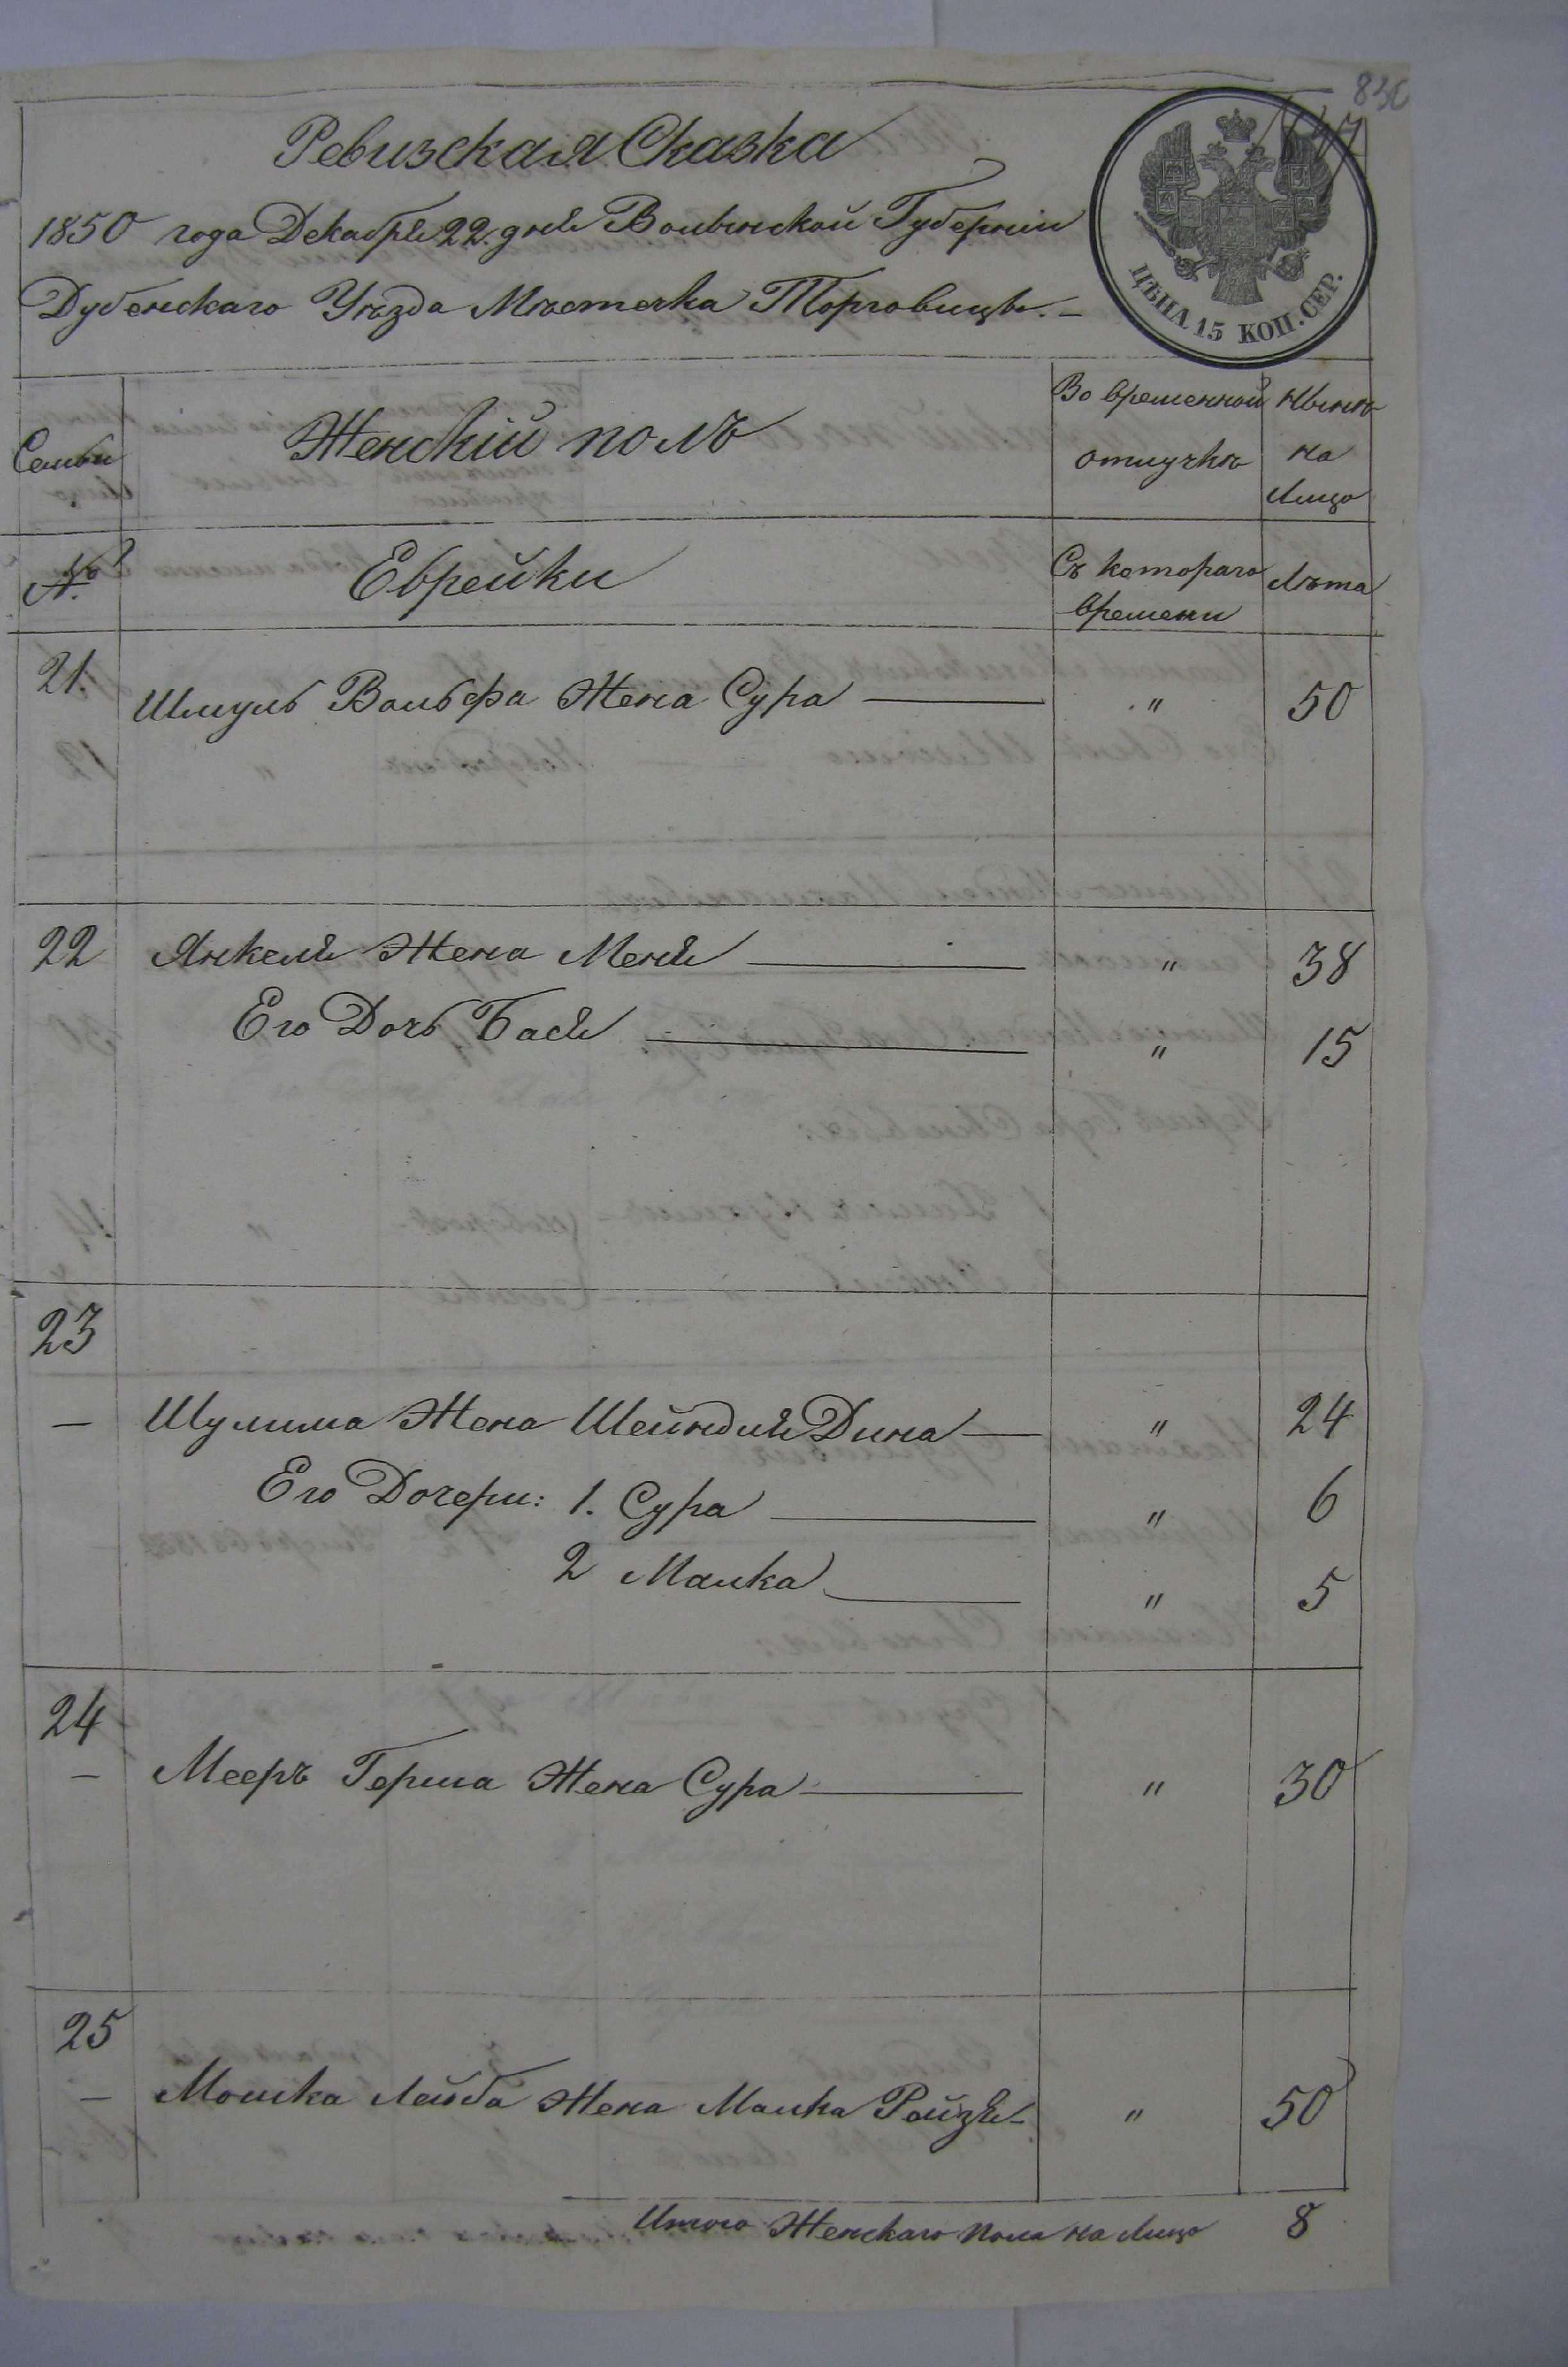 830
Ревизская Сказка
1850 года Декабря 22. дня Волынской Губерніи
Дубенскаго Уѣзда Мѣстечка Торговицы. –
ЦѢНА 15 КОП. СЕР.
Семьи
Женскій полъ
Во временной отлучкѣ
Нынѣ на лицо
№
Еврейки
Съ котораго времени
Лѣта
21. Шмуль Вольфа Жена Сура — " 50
22 Янкеля Жена Меня — " 38
Его Дочь Бася — " 15
23
— Шулима Жена Шейндля Дина — " 24
Его Дочери: 1. Сура — " 6
2 Малка — " 5
24
— Мееръ Герша Жена Сура — " 30
25
— Мошка Лейба Жена Малка Рейзя - " 50
Итого Женскаго пола на лицо 8